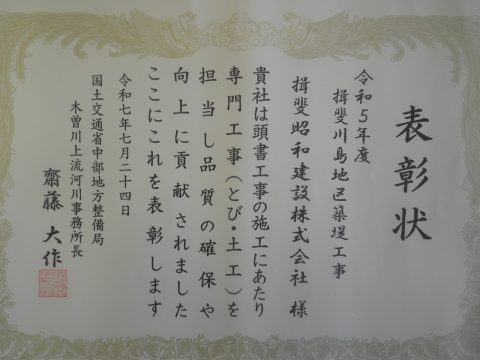 表彰状
令和5年度
揖斐川島地区築堤工事
揖斐昭和建設株式会社 様
貴社は頭書工事の施工にあたり
専門工事(とび・土工)を
担当し品質の確保や
向上に貢献されました
ここにこれを表彰します
令和七年七月二十四日
国土交通省中部地方整備局
木曽川上流河川事務所長
齋藤 大作